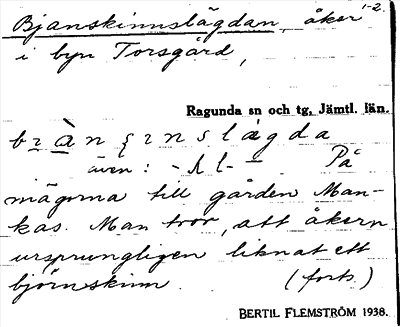 Bjanskinnslägdan, åker 1-2.
i byn Torsgård,
Ragunda sn och tg, Jämtl. län.
även : På
mägorna till gården Man-
kas. Man tror, att åkern
ursprungligen liknat ett
björnskinn. (forts.)
BERTIL FLEMSTRÖM 1938.